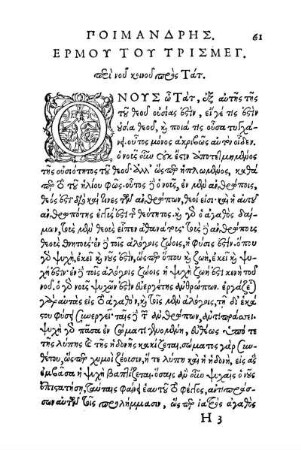 ΠΟΙΜΑΝΔΡΗΣ. 61
ΕΡΜΟΥ ΤΟΥ ΤΡΙΣΜΕΓ.
περὶ νοῦ κοινοῦ πρὸς Τάτ.
Ο ΝΟΥΣ ὦ Τάτ, ἐξ αὐτῆς τῆς
τοῦ θεοῦ οὐσίας ἐστὶν, εἴγέ τις ἐστὶν
οὐσία θεοῦ, καὶ ποία τις οὖσα τυγχά-
νει, οὗτος μόνος ἀκριβῶς αὑτὸν οἶδεν.
ὁ νοῦς οὖν οὐκ ἔστιν ἀποτετμημένος
τῆς οὐσιότητος τοῦ θεοῦ· ἀλλ' ὥσπερ ἡπλωμένος, καθά-
περ τὸ τοῦ ἡλίου φῶς· οὗτος δὲ ὁ νοῦς, ἐν μὲν ἀνθρώποις,
θεός ἐστι· διὸ καί τινες τῶν ἀνθρώπων, θεοί εἰσι· καὶ ἡ αὐτῶν
ἀνθρωπότης ἐγγύς ἐστι τῆς θεότητος. καὶ γὰρ ὁ ἀγαθὸς δαί-
μων, τοὺς μὲν θεοὺς εἶπεν ἀθανάτους· τοὺς δὲ
θεοὺς θνητούς· ἐν δὲ τοῖς ἀλόγοις ζώοις, ἡ φύσις ἐστίν. ὅπου
γὰρ ψυχὴ, ἐκεῖ καὶ νοῦς ἐστιν, ὥσπερ ὅπου καὶ ζωὴ, ἐκεῖ καὶ ψυ-
χή ἐστιν· ἐν δὲ τοῖς ἀλόγοις ζώοις, ἡ ψυχὴ ζωή ἐστι κενὴ τοῦ
νοῦ. ὁ γὰρ νοῦς ψυχῶν ἐστιν εὐεργέτης ἀνθρώπων. ἐργάζε-
γὰρ αὐταῖς εἰς τὸ ἀγαθὸν, καὶ τοῖς μὲν ἀλόγοις, τῇ δι' ἑκά-
του φύσει συνεργεῖ· ταῖς δὲ τῶν ἀνθρώπων, ἀντιπράσσει·
ψυχὴ γὰρ πᾶσα ἐν σώματι γενομένη, εὐθέως ὑπό τε
τῆς λύπης καὶ τῆς ἡδονῆς κακίζεται. σώματος γὰρ συν-
θέτου, ὥσπερ χυμοὶ ζέουσιν, ἥ τε λύπη καὶ ἡ ἡδονὴ, εἰς ἃς
ἐμβᾶσα ἡ ψυχὴ βαπτίζεται. ὅσαις ἂν οὖν ψυχαῖς ὁ νοῦς
ἐπιστατήσῃ, ταύταις φαίνει ἑαυτοῦ τὸ φέγγος, ἀντιπράσ-
σων αὐτῶν τοῖς προλήμμασιν, ὥσπερ ἰατρὸς ἀγαθὸς
H 3